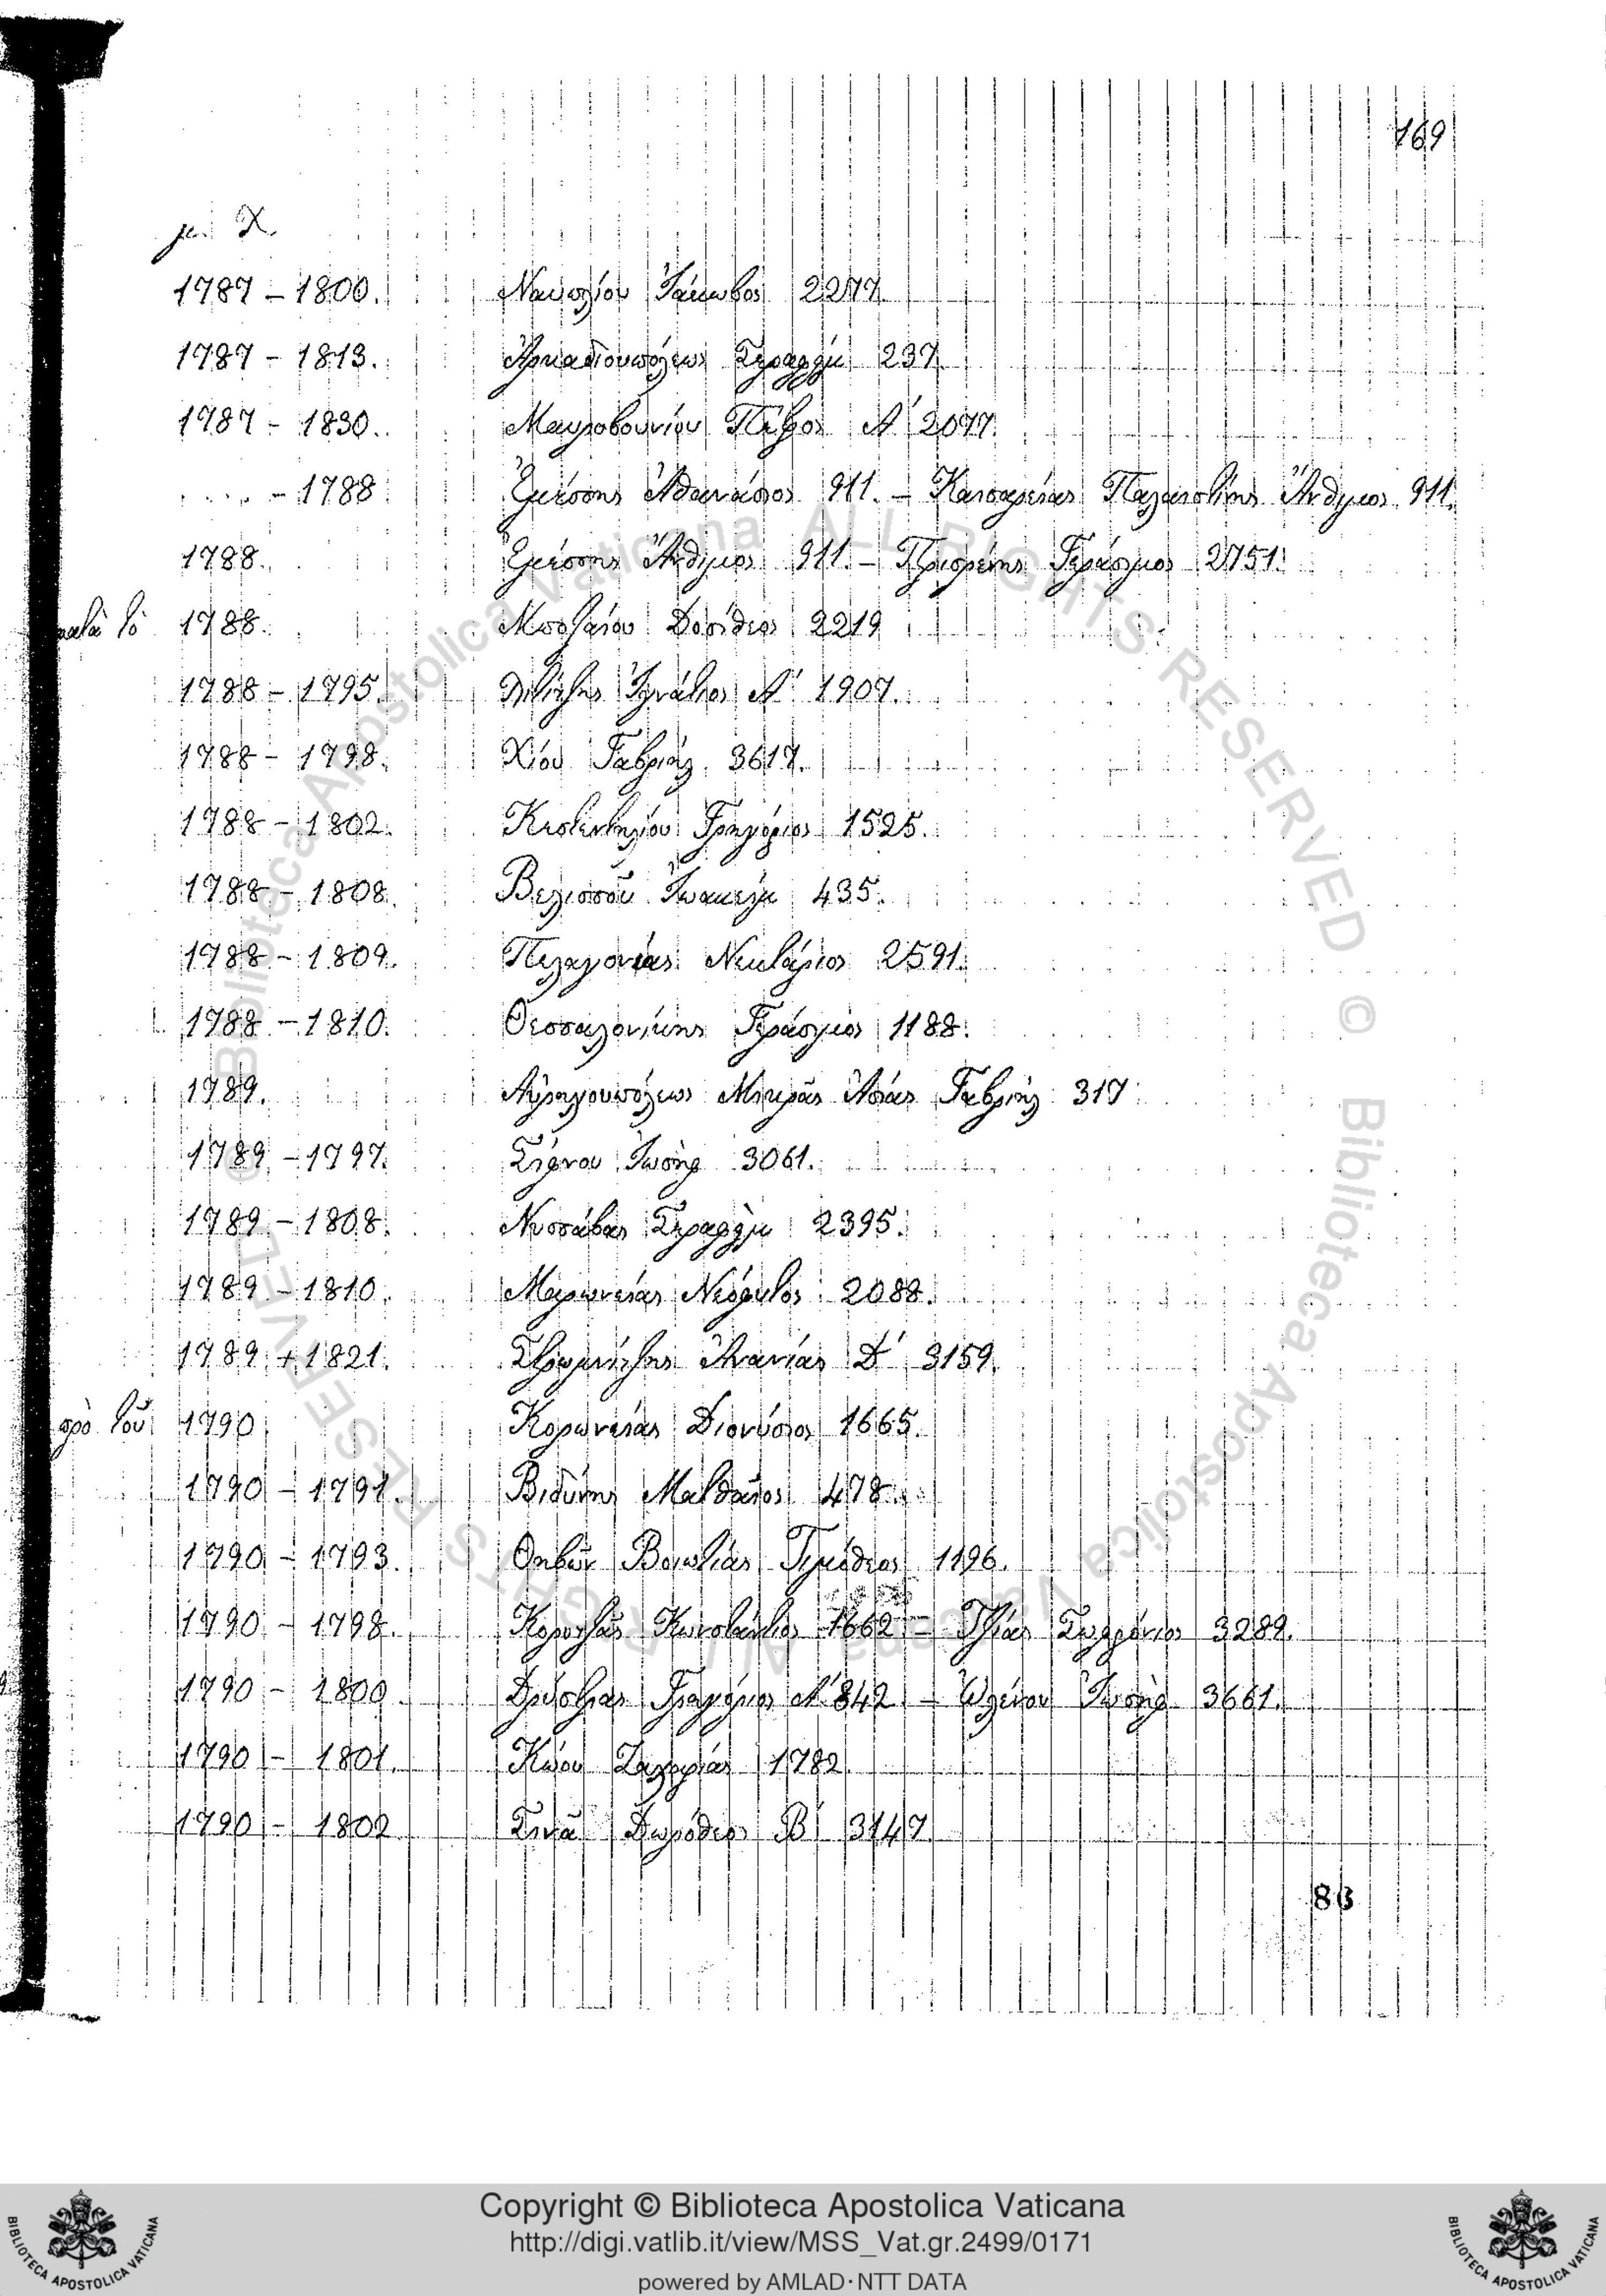 169
μ. Χ.
1787 – 1800. Ναυπλίου Ἰάκωβος 2277.
1787 – 1813. Ἀρκαδιουπόλεως Σεραφεὶμ 237.
1787 – 1830. Μαυροβουνίου Πέτρος Α΄ 2077.
.... – 1788. Ἐμέσσης Ἀθανάσιος 911. – Καισαρείας Παλαιστίνης Ἄνθιμος 911.
1788. Ἐμέσσης Ἄνθιμος 911. – Πρισρένης Γεράσιμος 2751.
κατὰ τὸ 1788. Δοσίθεος 2219
1788 – 1795. Λιτίτζης Ἰγνάτιος Α΄ 1907.
1788 – 1798. Χίου Γαβριὴλ 3617.
1788 – 1802. Κιστεντηλίου Γρηγόριος 1525.
1788 – 1808. Βελισσοῦ Ἰωακεὶμ 435.
1788 – 1809. Πελαγονίας Νεκτάριος 2591.
1788 – 1810. Θεσσαλονίκης Γεράσιμος 1188.
1789. Αὐρηλιουπόλεως Μικρᾶς Ἀσίας Γαβριὴλ 317
1789 – 1797. Ἰωσὴφ 3061.
1789 – 1808. Νυσσάβας Σεραφεὶμ 2395.
1789 – 1810. Μαρωνείας Νεόφυτος 2088.
1789 + 1821. Στρωμνίτζης Ἀνανίας Δ΄ 3159.
πρὸ τοῦ 1790 Κορωνείας Διονύσιος 1665.
1790 – 1791. Βιδύνης Ματθαῖος 478.
1790 – 1793. Θηβῶν Βοιωτίας Τιμόθεος 1196.
1790 – 1798. Κορυτζᾶς Κωνστάντιος 1662 – Τζίας Σωφρόνιος 3289.
1790 – 1800. Δρύστρας Γρηγόριος Α΄ 842 – Ὠλένου Ἰωσὴφ 3661.
1790 – 1801. Κώου Ζαχαρίας 1782.
1790 – 1802 Σινᾶ Δωρόθεος Β΄ 3147
83
Copyright © Biblioteca Apostolica Vaticana
http://digi.vatlib.it/view/MSS_Vat.gr.2499/0171
powered by AMLAD·NTT DATA
BIBLIOTECA APOSTOLICA VATICANA
BIBLIOTECA APOSTOLICA VATICANA